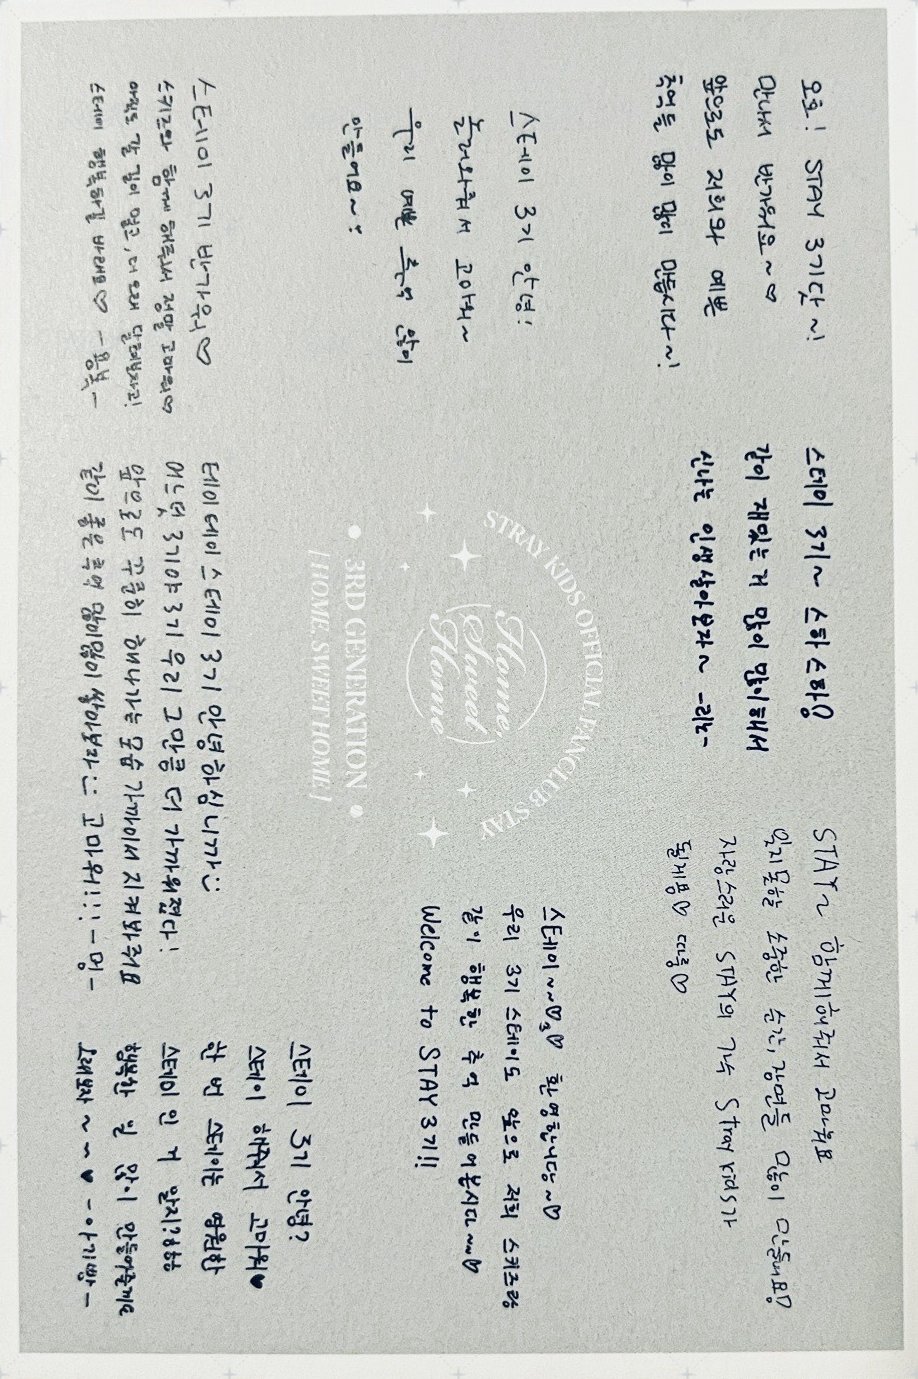 오호! STAY 3기닷~!
만나서 반가워요~♡
앞으로도 저희와 예쁜
추억들 많이 많이 만듭시다~!
스테이 3기~ 스하스하
같이 재밌는 거 많이 많이해서
신나는 인생 살아보자~ -리노-
STAY~ 함께해줘서 고마워요
잊지못할 소중한 순간, 장면들 많이 만들어요♡
자랑스러운 STAY의 가수 Stray kids가
될게용♡ 따룽♡
스테이 3기 안녕!
놀러와줘서 고마워~
우리 예쁜 추억 많이
만들어요~:
STRAY KIDS OFFICIAL FANCLUB STAY
Home
Sweet
Home
• 3RD GENERATION •
[HOME SWEET HOME]
스테이~~♡3♡ 환영합니당~♡
우리 3기 스테이도 앞으로 저희 스키즈랑
같이 행복한 추억 만들어봅시다~~♡
Welcome to STAY 3기!!
스테이 3기 반가워♡
스키즈와 함께 해줘서 정말 고마워♡
아직도 갈 길이 멀고, 더 오래 달려보자고!
스테이 행복하길 바래요♡ -용복-
테이테이스테이 3기 안녕하십니까:;
어느덧 3기야 3기 우리 그만큼 더 가까워졌다!
앞으로도 꾸준히 해나가는 모습 가까이서 지켜봐줘요
같이 좋은추억 많이많이 쌓아보자:; 고마워!!! -멍-
스테이 3기 안녕?
스테이 해줘서 고마워♥
한 번 스테이는 영원한
스테이 인 거 알지?ㅎㅎㅎ
행복한 일 많이 만들어줄테니
오래보자~~♥ -아기빵-